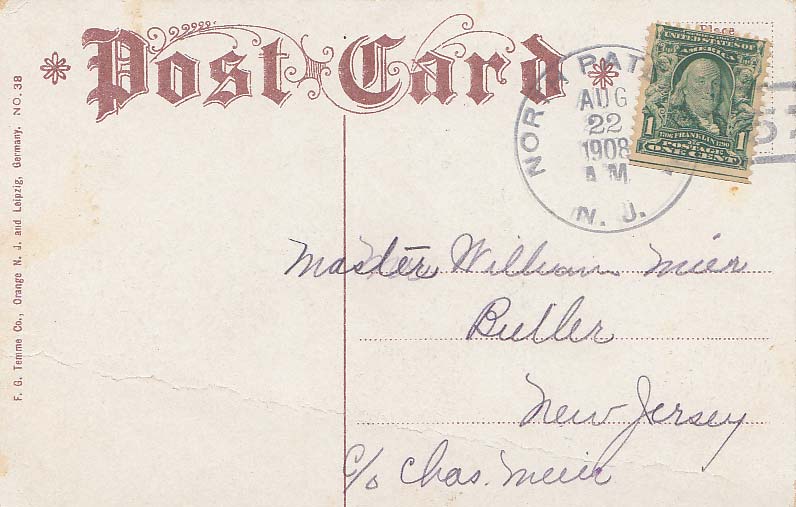 Post Card
Place
UNITED STATES OF
AMERICA
1 1706 FRANKLIN 1790 1
POSTAGE
ONE CENT
NORTH PAT
AUG
22
1908
A.M.
N. J.
Master William Mier
Butler
New Jersey
c/o Chas. Meier
F. G. Temme Co., Orange N. J. and Leipzig, Germany. NO. 38